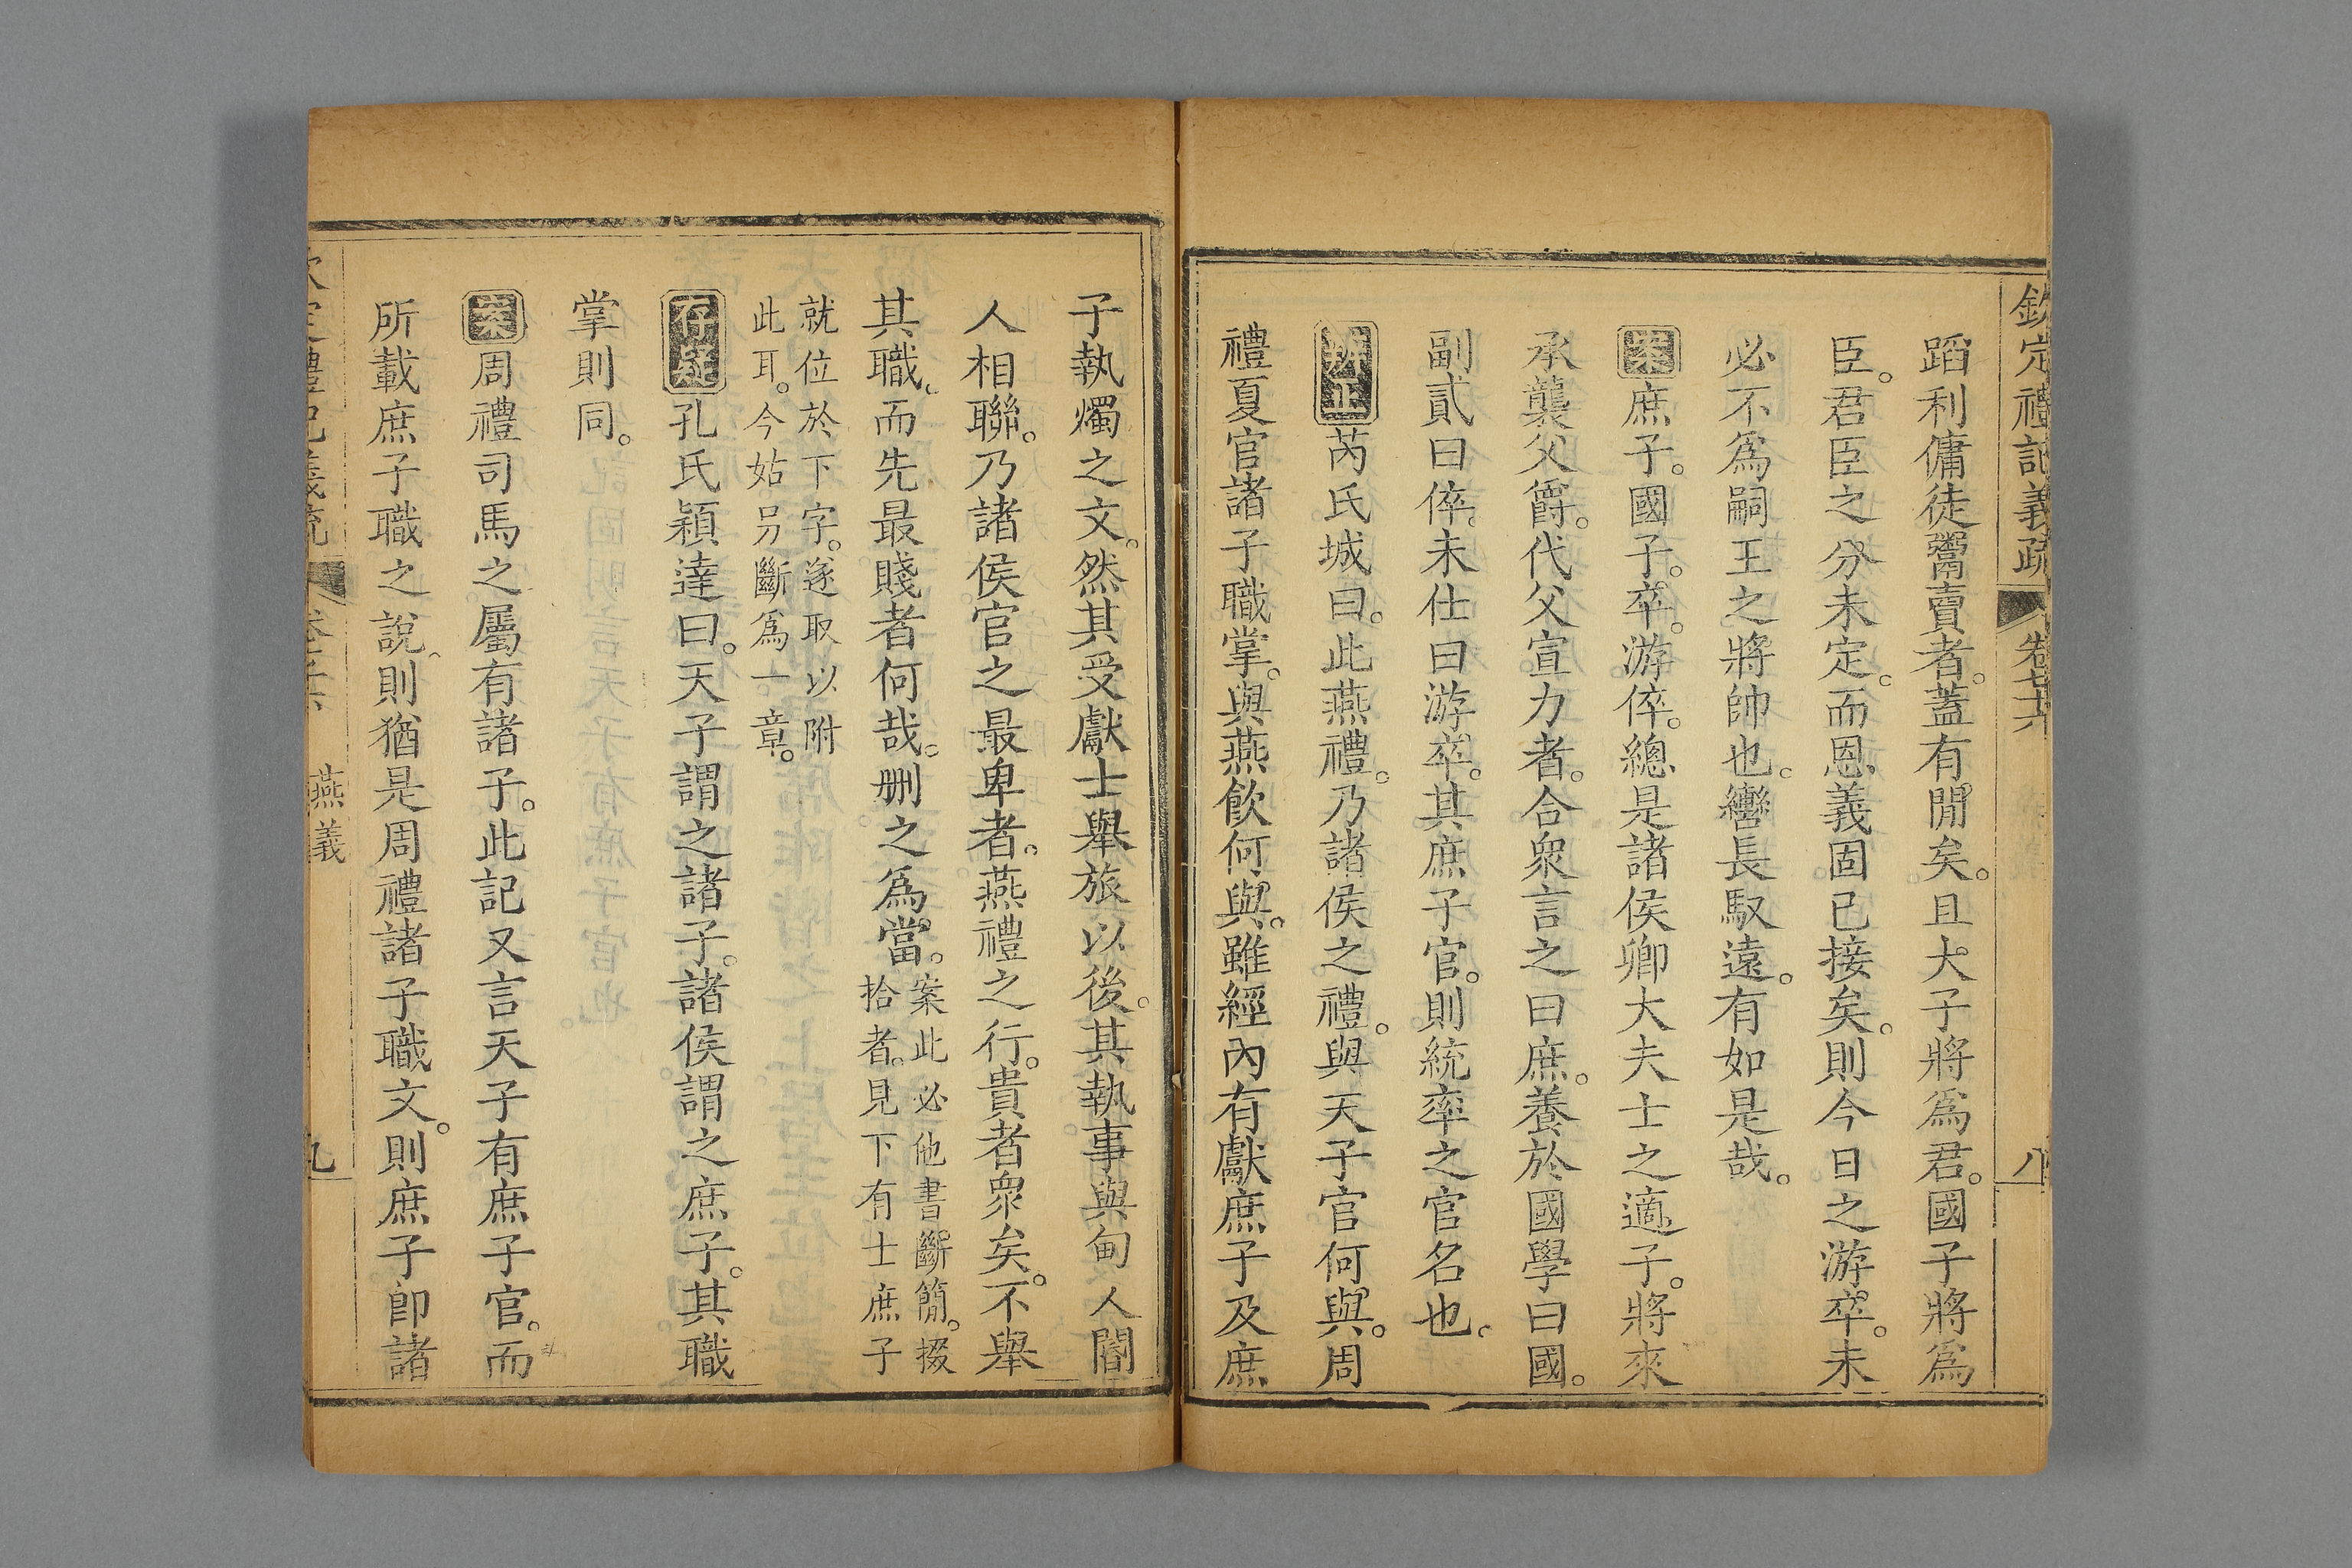 欽定禮記義疏 卷七十六 八
蹈利傭徒鬻賣者。蓋有閒矣。且大子將爲君。國子將爲
臣。君臣之分未定。而恩義固已接矣。則今日之游卒。未
必不爲嗣王之將帥也。轡長馭遠。有如是哉。
案庶子。國子。卒。游倅。總是諸侯卿大夫士之適子。將來
承襲父爵。代父宣力者。合衆言之曰庶。養於國學曰國。
副貳曰倅。未仕曰游卒。其庶子官。則統率之官名也。
辨正芮氏城曰。此燕禮。乃諸侯之禮。與天子官何與。周
禮夏官諸子職掌。與燕飲何與。雖經內有獻庶子及庶
子執燭之文。然其受獻士舉旅以後。其執事與甸人閽
人相聯。乃諸侯官之最卑者。燕禮之行。貴者衆矣。不舉
其職。而先最賤者何哉。删之爲當。案此必他書斷簡。掇
拾者。見下有士庶子
就位於下字。遂取以附
此耳。今姑另斷爲一章。
存疑孔氏穎達曰。天子謂之諸子。諸侯謂之庶子。其職
掌則同。
案周禮司馬之屬有諸子。此記又言天子有庶子官。而
所載庶子職之說。則猶是周禮諸子職文。則庶子卽諸
燕義 九